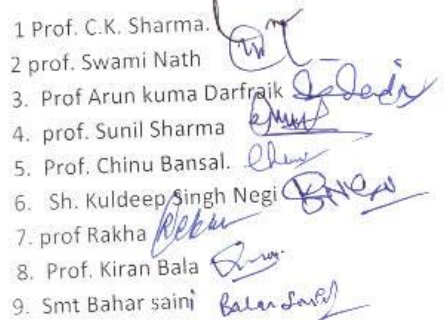 1 Prof. C.K. Sharma.
2 prof. Swami Nath
3. Prof Arun kuma Darfraik
4. prof. Sunil Sharma
5. Prof. Chinu Bansal.
6. Sh. Kuldeep Singh Negi
7. prof Rakha Rekha
8. Prof. Kiran Bala
9. Smt Bahar saini Bahar Saini